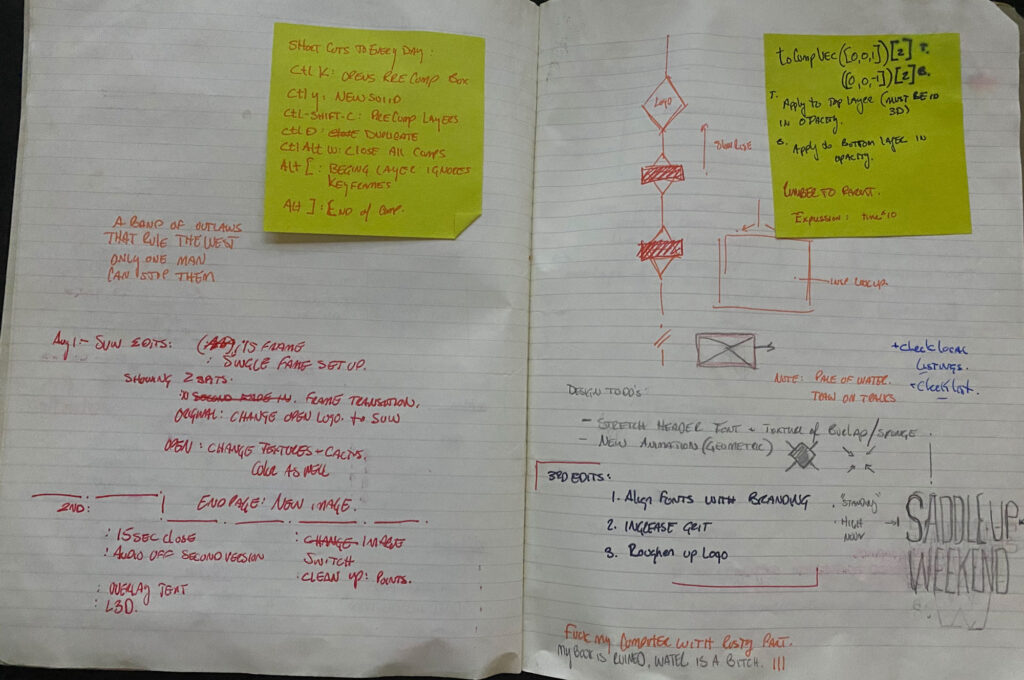 SHORT CUTS TO EVERY DAY:
Ctl K: OPENS PRE COMP BOX
Ctl y: NEW SOLID
CTL-SHIFT-C: PRE COMP LAYERS
ctl D: DUPLICATE
Ctl Alt W: CLOSE All COMPS
Alt [: BEGING LAYER IGNORES
KEYFRAMES
Alt ]: End of Comp.
A BAND OF OUTLAWS
THAT RULE THE WEST
ONLY ONE MAN
CAN STOP THEM
Aug 1:- SUW EDITS: 15 FRAME
: SINGLE FAME SET UP.
SHOWING 2 BATS.
SECOND FADE IN. FRAME TRANSITION.
ORIGINAL: CHANGE OPEN LOGO. to SUW
OPEN: CHANGE TEXTURES + CACTUS,
COLOR AS WELL
2ND:
END PAGE: NEW IMAGE.
: 15 SEC CLOSE
: AUDIO OFF SECOND VERSION
: OVERLAY TEXT
: L3D.
: CHANGE IMAGE
SWITCH
: CLEAN UP: POINTS.
toCompVec([0,0,1])[2] T.
([0,0,-1])[2] B.
T. Apply to Top Layer (MUST BE IN
3D)
IN OPACITY.
B. Apply to BOTTOM LAYER IN
OPACITY.
NUMBER TO PARENT.
Expression: time*10
LOGO
SLOW RISE
+ Check local
Listings.
+ Check List
NOTE: PALE OF WATER.
TRAIN ON TRACKS
DESIGN TO DO'S:
- STRETCH HEADER FONT + TEXTURE OF BURLAP/SPONGE.
- NEW ANIMATION (GEOMETRIC)
3RD EDITS:
1. Align FONTS WITH BRANDING
2. INCREASE GRIT
3. Roughen up Logo
"STANDING"
HIGH
NOON
SADDLE UP
WEEKEND
FUCK MY COMPUTER WITH RUSTY PART.
MY BOOK IS RUINED, WATER IS A BITCH. !!!